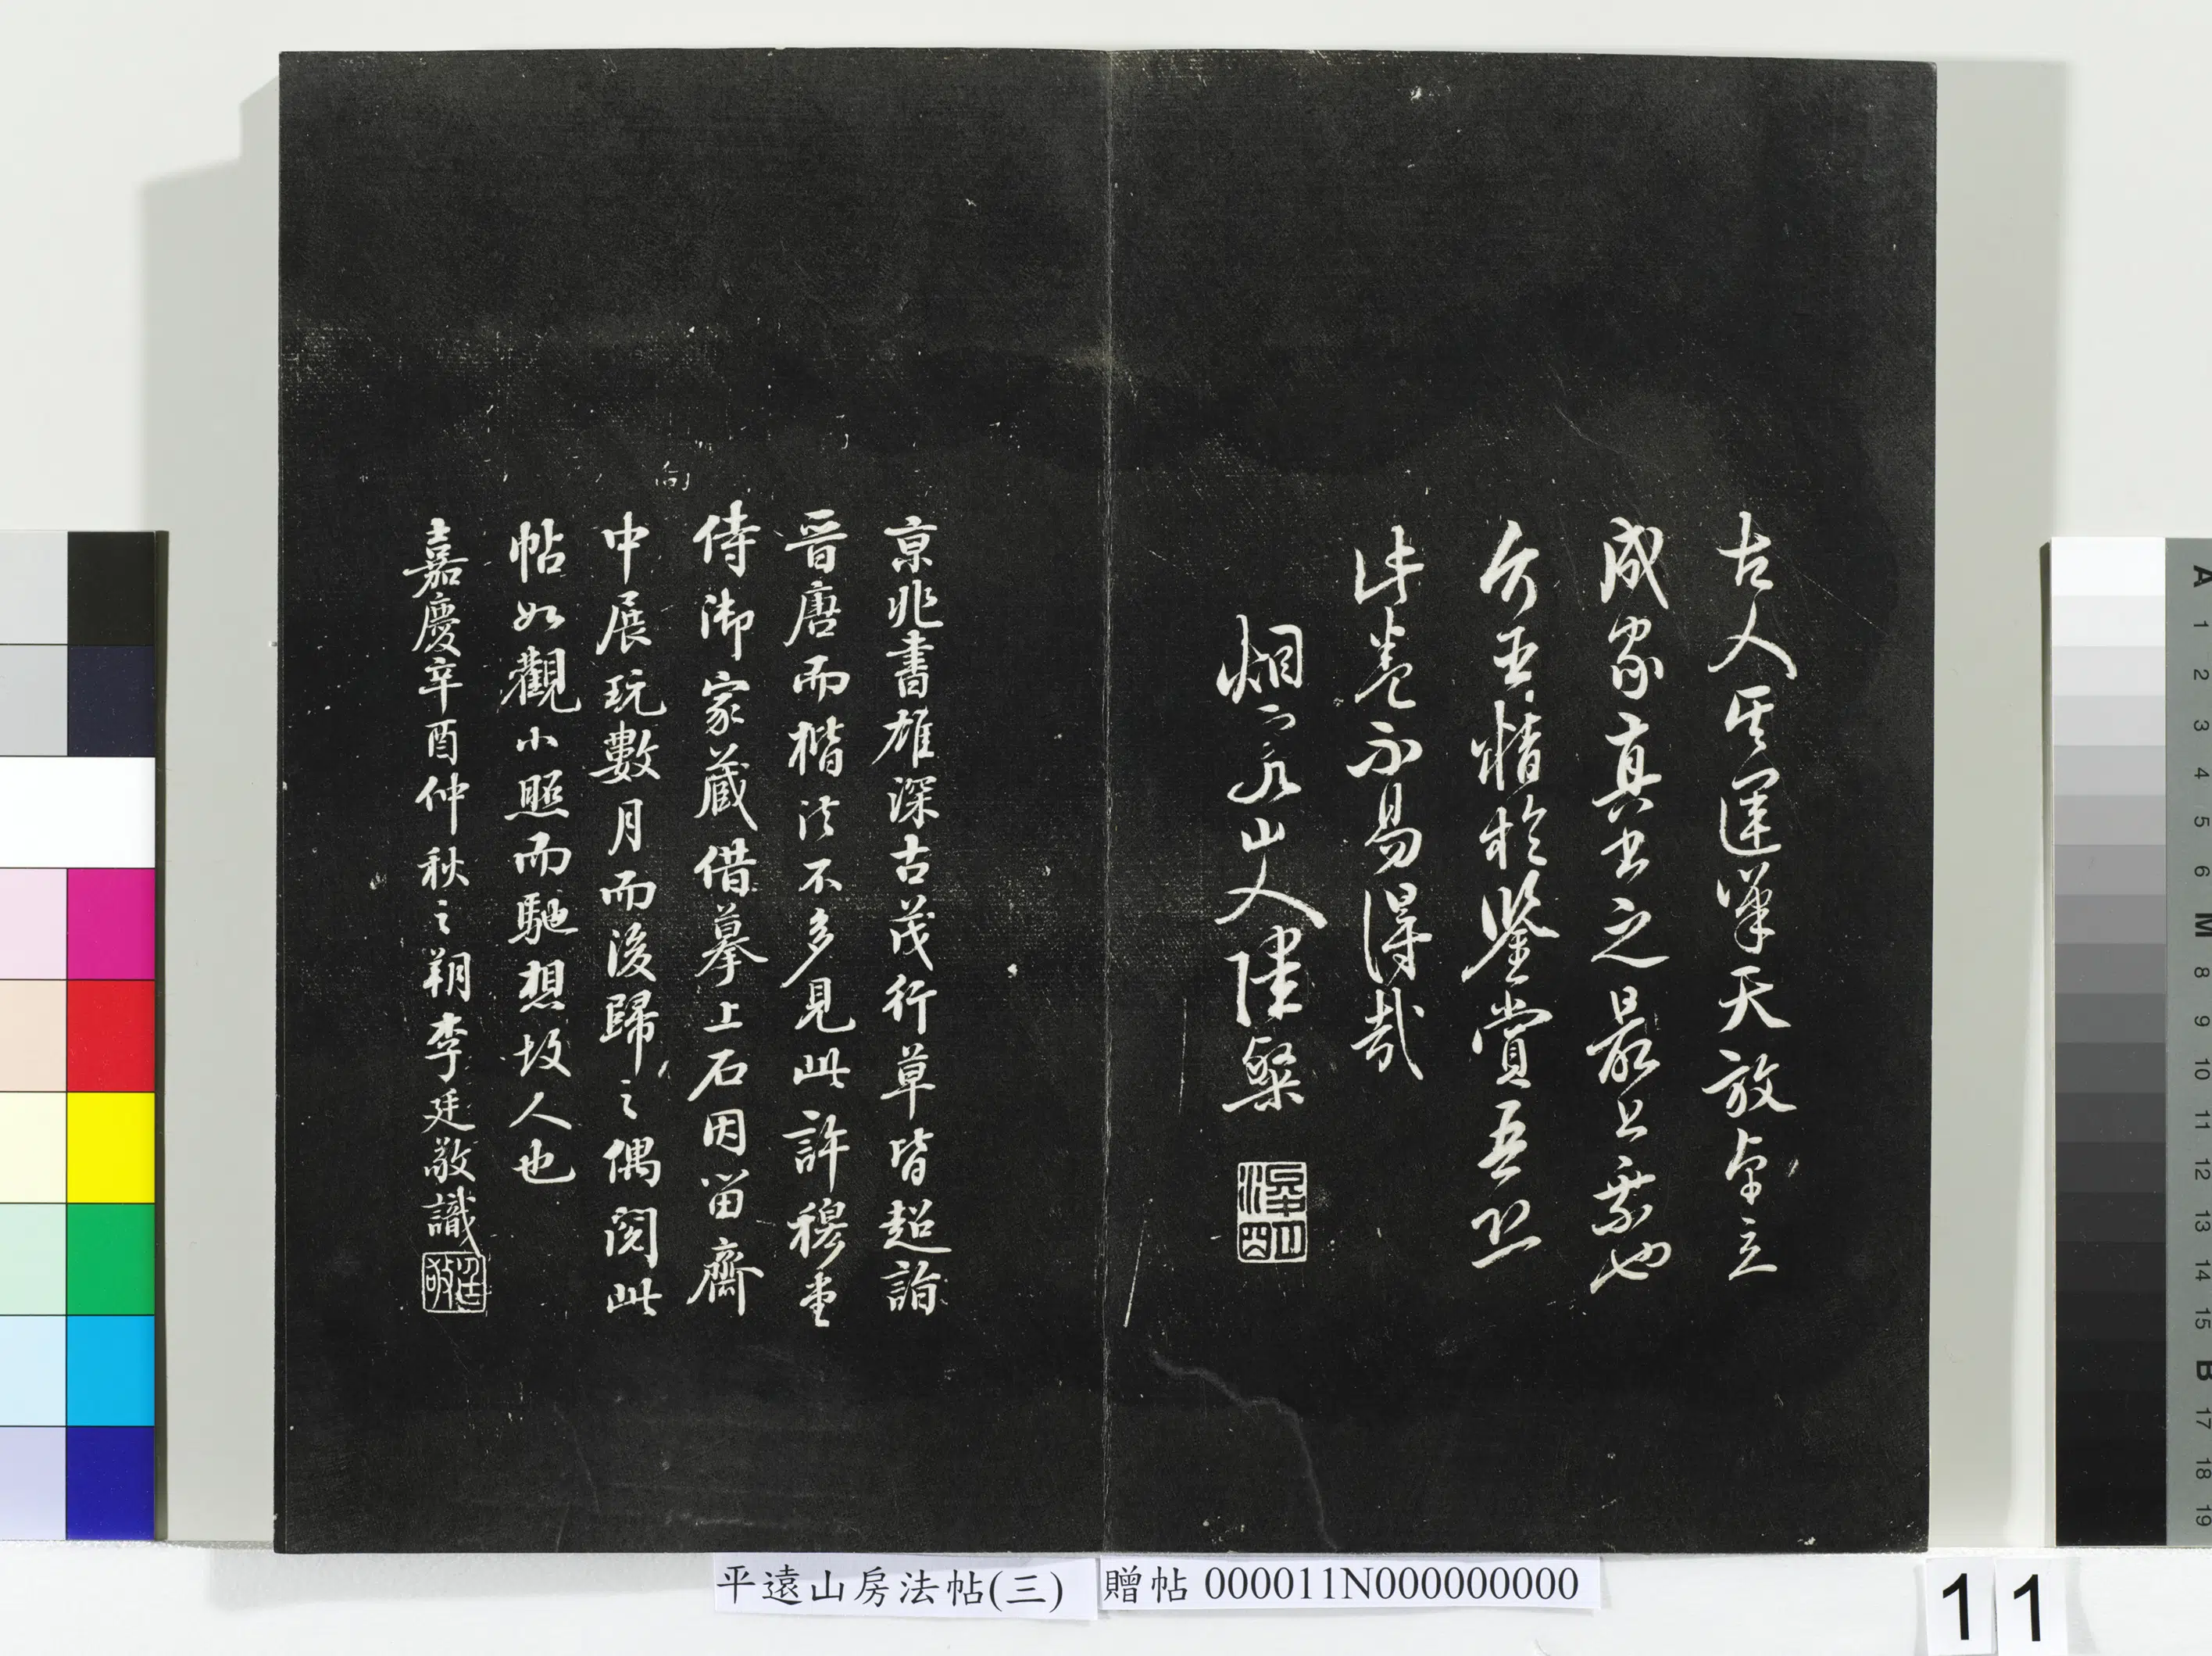 古人運筆天放卓立
成家真書之最上乘也
情於鑒賞吾
此卷不易得哉
山人陳粲
京兆書雄深古茂行草皆超詣
晉唐而楷法不多見此許穆堂
侍御家藏借摹上石因留齋
中展玩數月而後歸之偶閱此
帖如觀小照而馳想故人也
嘉慶辛酉仲秋之朔李廷敬識
廷敬
平遠山房法帖(三)
贈帖 000011N000000000
11
A 1 2 3 4 5 6 M 8 9 10 11 12 13 14 15 B 17 18 19